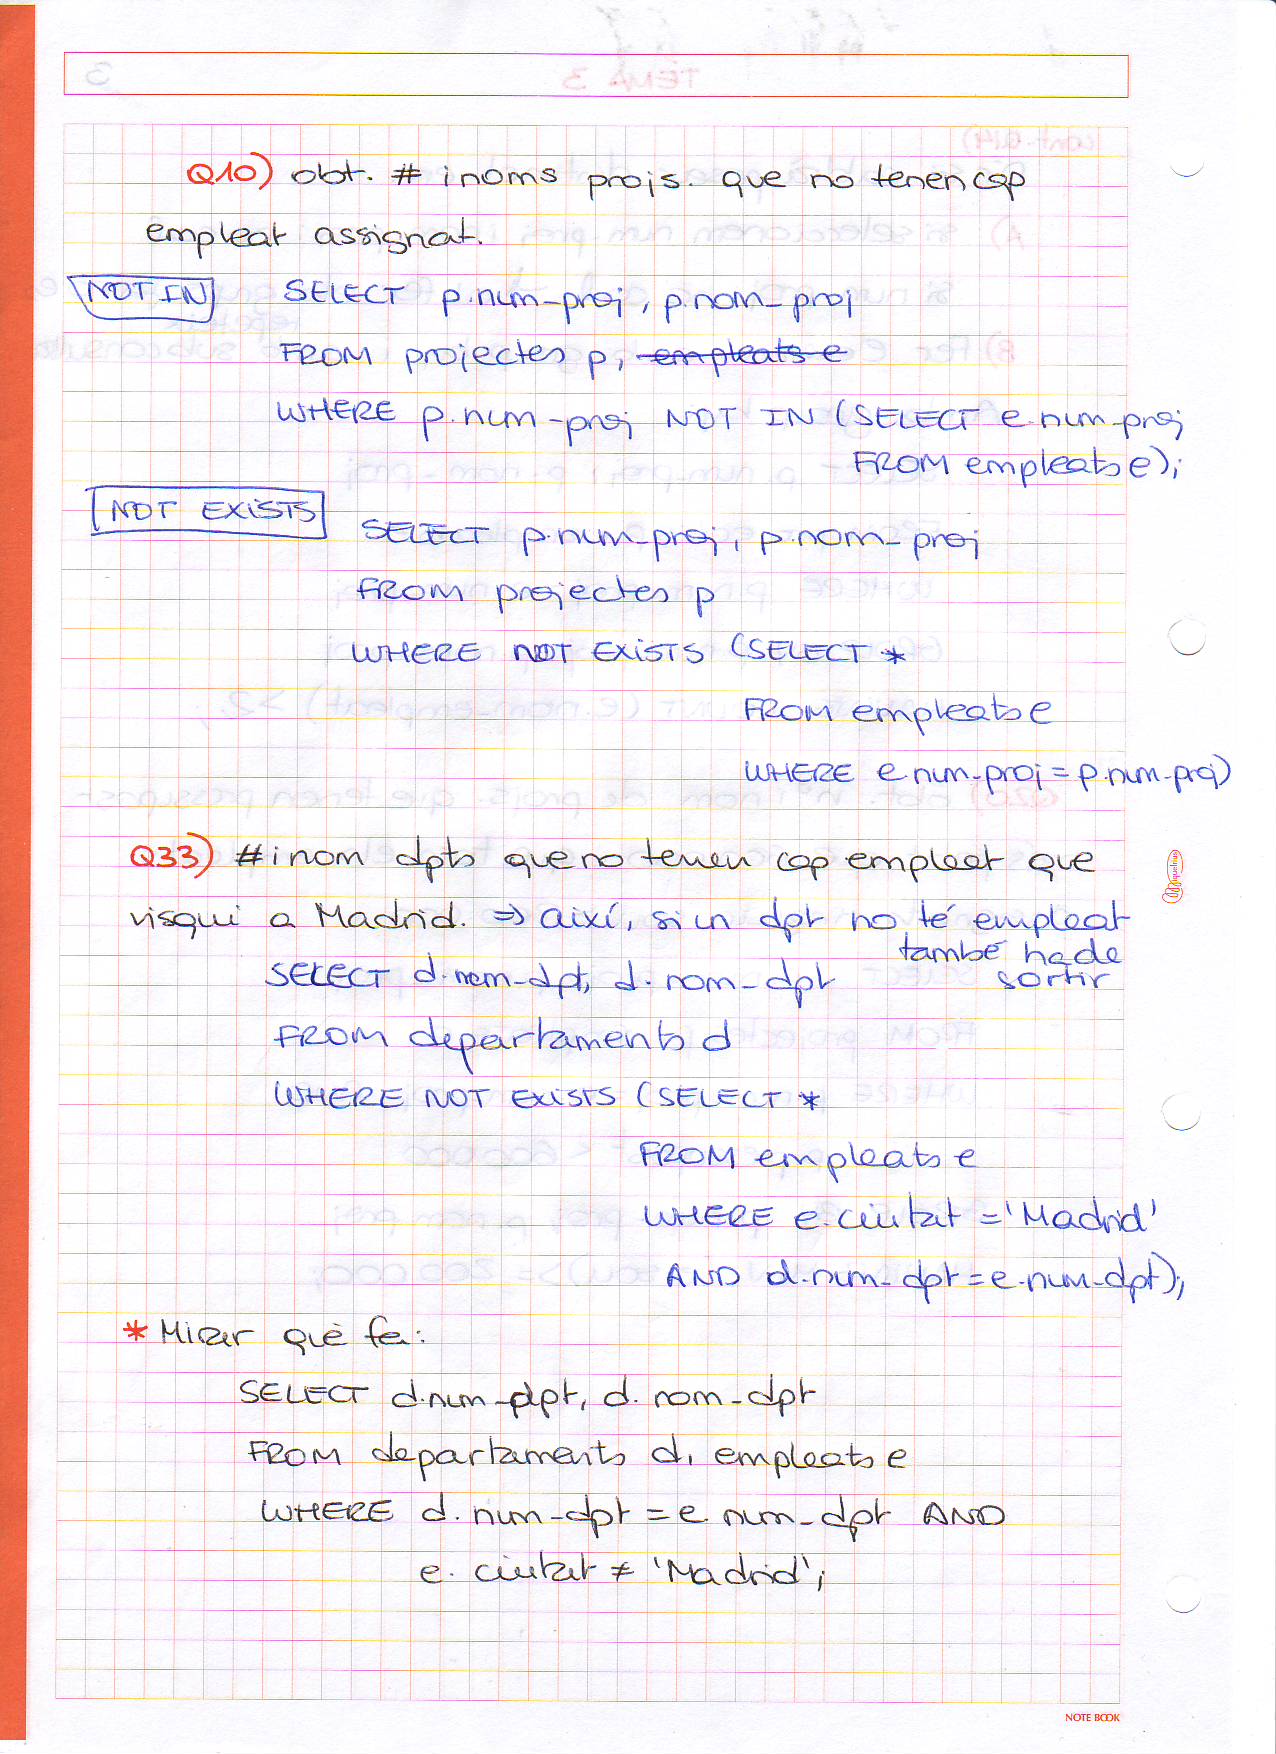 Q10) obt. # i noms projs. que no tenen cap
empleat assignat.
NOT IN SELECT p.num_proj, p.nom_proj
FROM projectes p, empleats e
WHERE p.num_proj NOT IN (SELECT e.num_proj
FROM empleats e);
NOT EXISTS SELECT p.num_proj, p.nom_proj
FROM projectes p
WHERE NOT EXISTS (SELECT *
FROM empleats e
WHERE e.num_proj = p.num_proj)
Q33) # i nom dpts que no tenen cap empleat que
visqui a Madrid. ⇒ així, si un dpt no té empleat
també ha de
SELECT d.nom_dpt, d.nom_dpt sortir
FROM departaments d
WHERE NOT EXISTS (SELECT *
FROM empleats e
WHERE e.ciutat = 'Madrid'
AND d.num_dpt = e.num_dpt);
* Mirar què fa:
SELECT d.num_dpt, d.nom_dpt
FROM departaments d, empleats e
WHERE d.num_dpt = e.num_dpt AND
e.ciutat ≠ 'Madrid';
NOTE BOOK